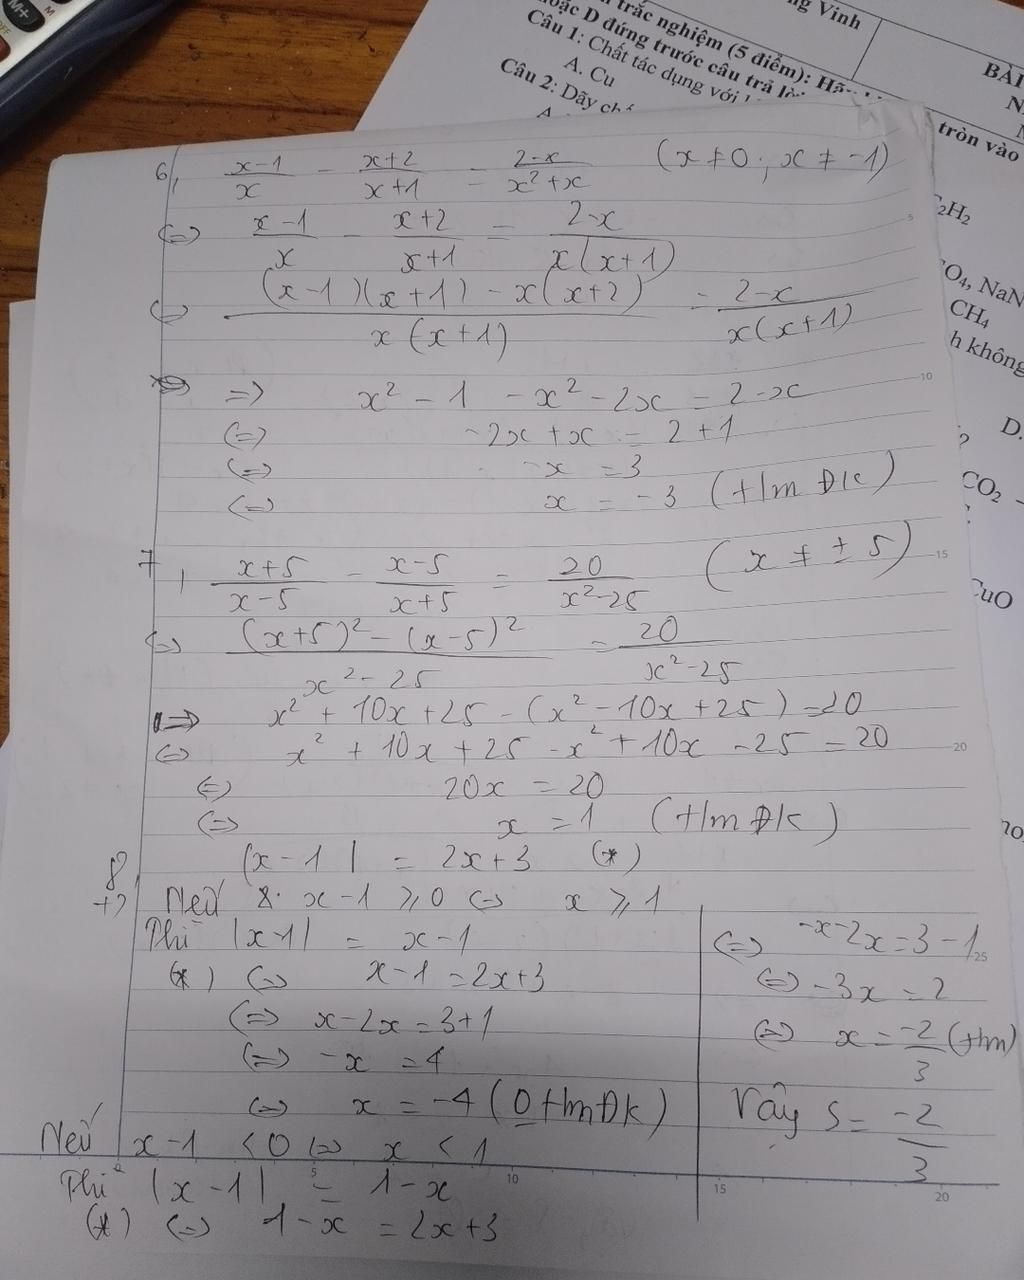 ng Vinh
trắc nghiệm (5 điểm):
hoặc D đứng trước câu trả lời
tròn vào
Câu 1: Chất tác dụng với
A. Cu
Câu 2: Dãy
A.
BÀI
M+
OFF
C2H2
NaN
CH4
h không
D.
CO2
CuO
6, (x-1)/x - (x+2)/(x+1) = (2-x)/(x²+x) (x ≠ 0 ; x ≠ -1)
<=> (x-1)/x - (x+2)/(x+1) = (2-x)/(x(x+1))
<=> ((x-1)(x+1) - x(x+2))/(x(x+1)) = (2-x)/(x(x+1))
=> x² - 1 - x² - 2x = 2-x
<=> -2x + x = 2+1
<=> -x = 3
<=> x = -3 (t/m ĐK)
7, (x+5)/(x-5) - (x-5)/(x+5) = 20/(x²-25) (x ≠ ± 5)
<=> ((x+5)² - (x-5)²)/(x²-25) = 20/(x²-25)
=> x² + 10x + 25 - (x² - 10x + 25) = 20
<=> x² + 10x + 25 - x² + 10x - 25 = 20
<=> 20x = 20
<=> x = 1 (t/m ĐK)
8, |x-1| = 2x+3 (*)
+) Nếu x-1 ≥ 0 <=> x ≥ 1
Thì |x-1| = x-1
(*) <=> x-1 = 2x+3
<=> x-2x = 3+1
<=> -x = 4
<=> x = -4 (0 t/m ĐK)
Nếu x-1 < 0 <=> x < 1
Thì |x-1| = 1-x
(*) <=> 1-x = 2x+3
<=> -x-2x = 3-1
<=> -3x = 2
<=> x = -2/3 (t/m)
Vậy S = -2/3
5
10
15
20
25
5
10
15
20